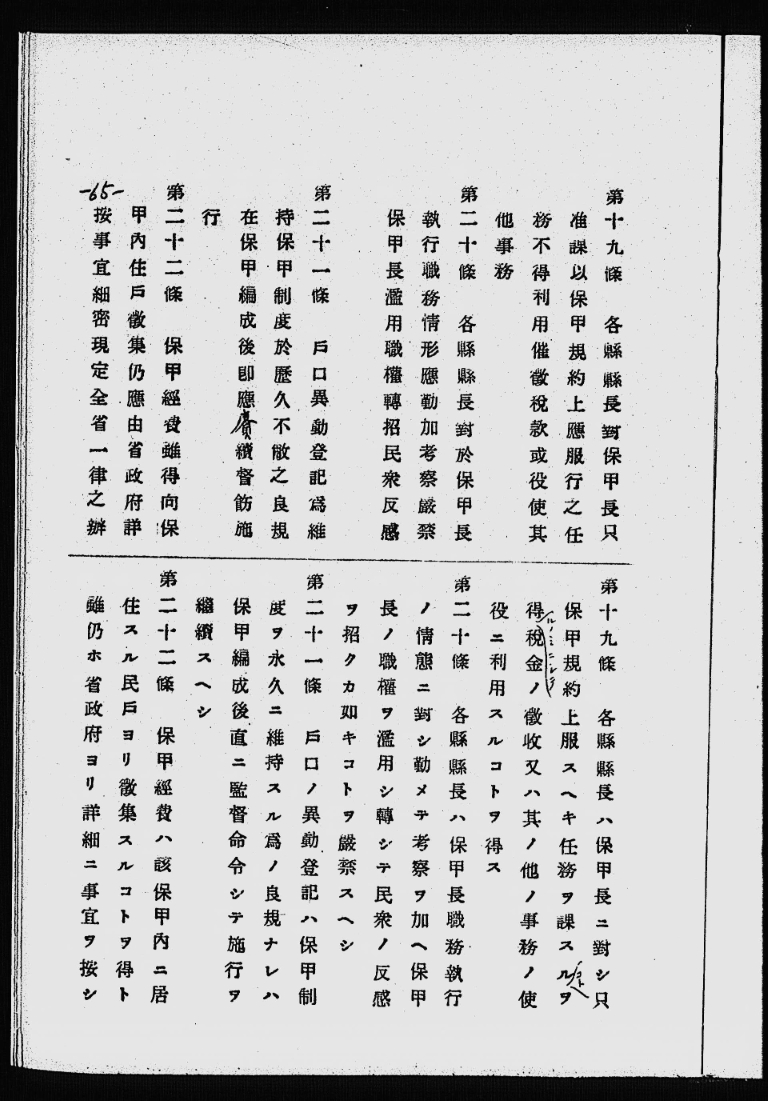 第十九條　各縣縣長對保甲長只
准課以保甲規約上應服行之任
務不得利用催徵稅款或役使其
他事務
第二十條　各縣縣長對於保甲長
執行職務情形應勤加考察嚴禁
保甲長濫用職權轉招民衆反感
第二十一條　戶口異動登記爲維
持保甲制度於歷久不敝之良規
在保甲編成後卽應賡續督飭施
行
第二十二條　保甲經費雖得向保
甲內住戶徵集仍應由省政府詳
按事宜細密現定全省一律之辦
第十九條　各縣縣長ハ保甲長ニ對シ只
保甲規約上服スヘキ任務ヲ課スルヲ
得稅金ノ徵收又ハ其ノ他ノ事務ノ使
役ニ利用スルコトヲ得ス
第二十條　各縣縣長ハ保甲長職務執行
ノ情態ニ對シ勤メテ考察ヲ加ヘ保甲
長ノ職權ヲ濫用シ轉シテ民衆ノ反感
ヲ招クカ如キコトヲ嚴禁スヘシ
第二十一條　戶口ノ異動登記ハ保甲制
度ヲ永久ニ維持スル爲ノ良規ナレハ
保甲編成後直ニ監督命令シテ施行ヲ
繼續スヘシ
第二十二條　保甲經費ハ該保甲內ニ居
住スル民戶ヨリ徵集スルコトヲ得ト
雖仍ホ省政府ヨリ詳細ニ事宜ヲ按シ
-65-